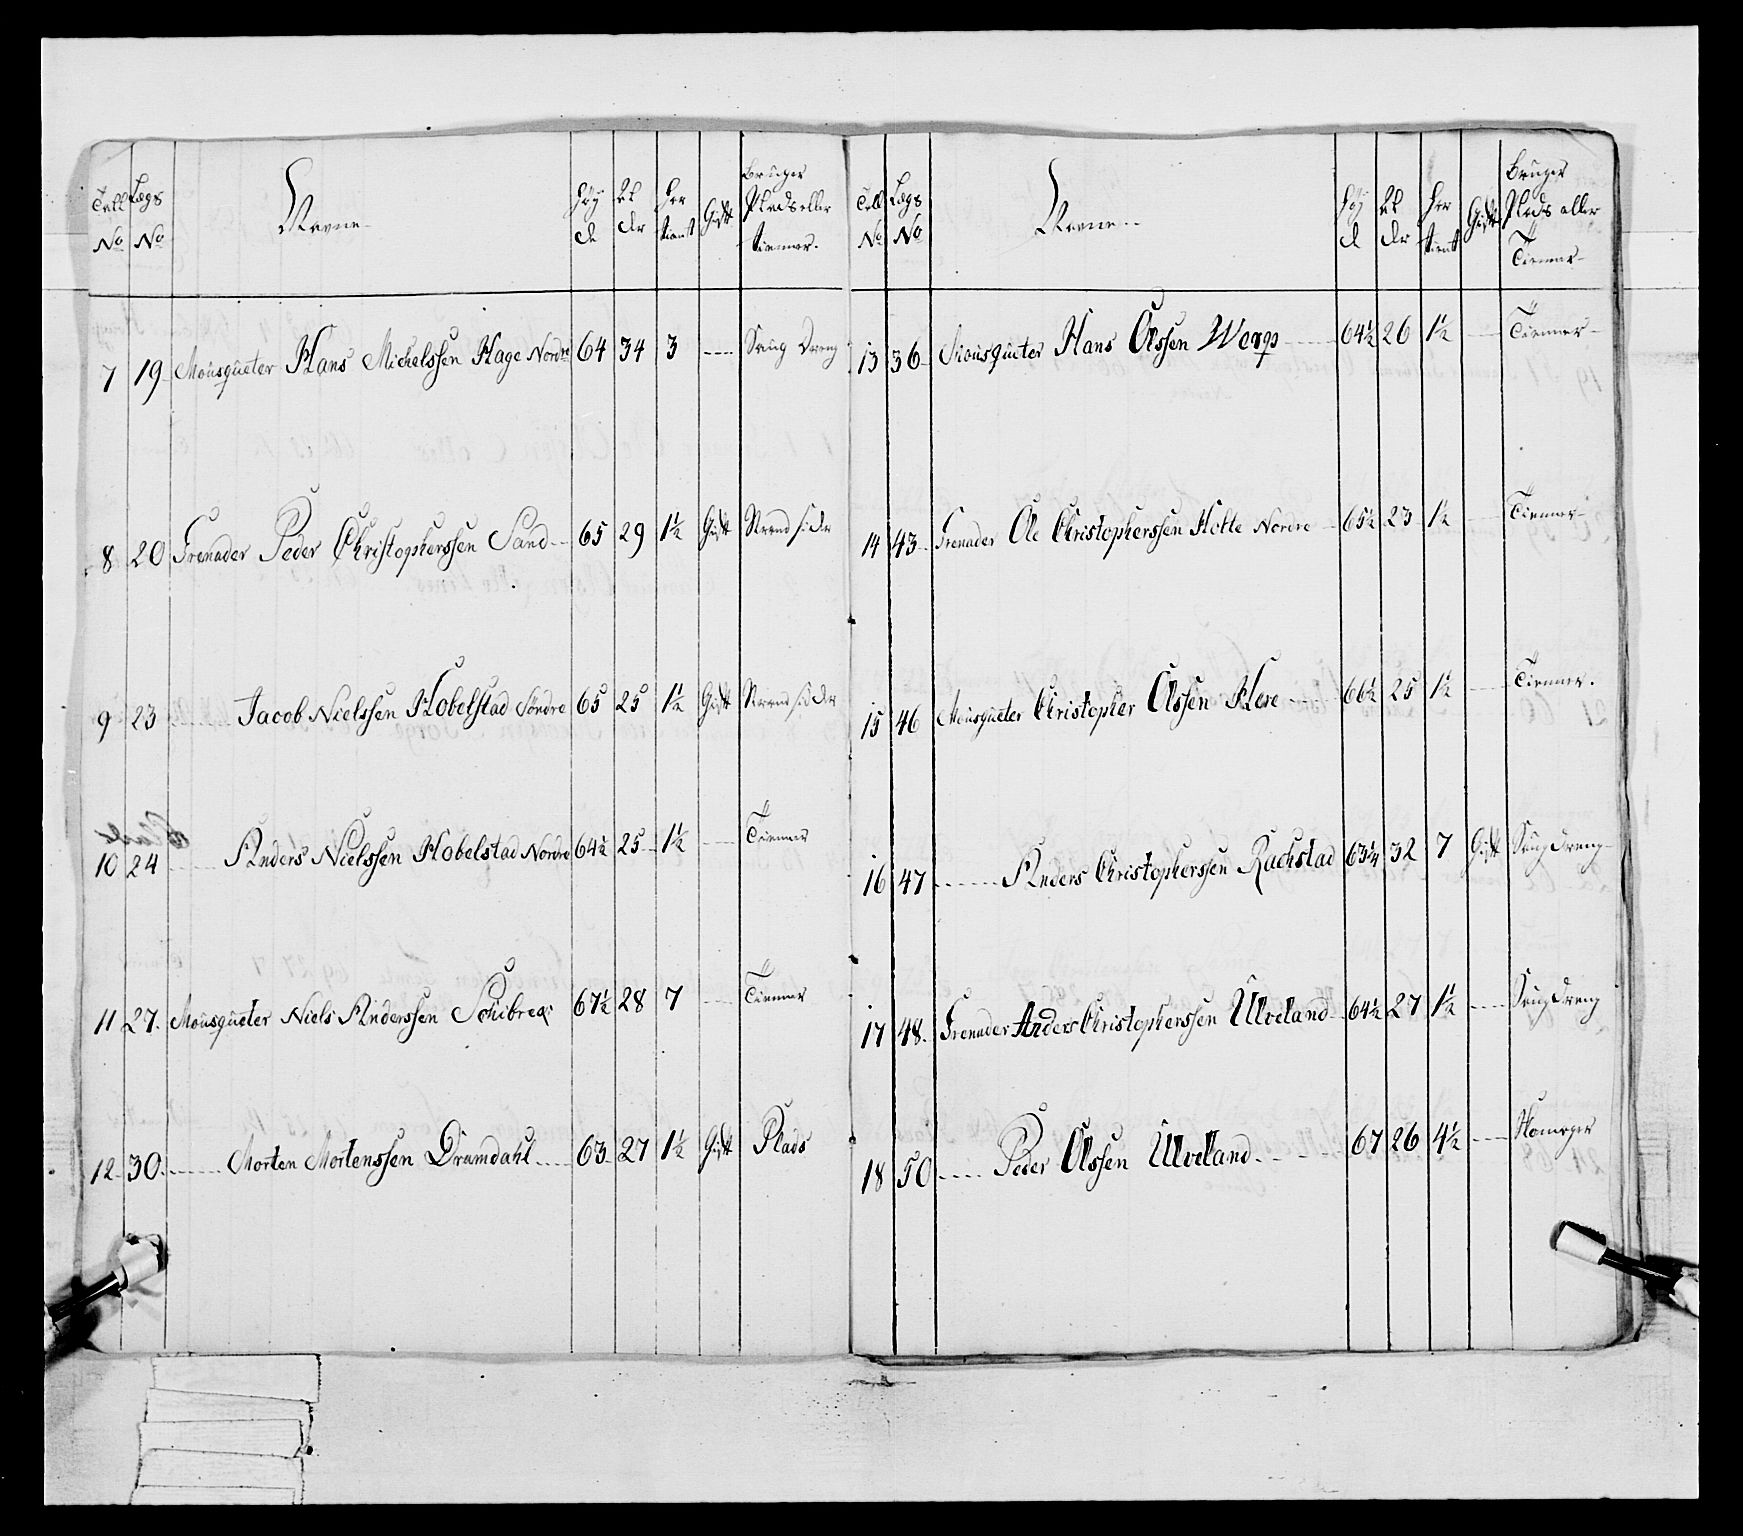 Tall No
Lægs No
Navne
Høyde
Alder
Har tient
Gift
Bruger Plads eller tienner.
7 19 Mousqueter Hans Michelssen Hage Nordre 64 34 3 --- Saug Dreng
8 20 Grenader Peder Christopherssen Sand 65 29 1½ Gift Strandsider
9 23 ---- Jacob Nielssen Hobelstad Söndre 65 25 1½ Gift Strandsider
10 24 ---- Anders Nielssen Hobelstad Nordre 64½ 25 1½ --- Tienner
11 27. Mousqueter Niels Anderssen Schibreq 67½ 28 7 --- Tienner
12 30. ---- Morten Mortenssen Dramdahl 63 27 1½ Gift Plads
Tall No
Lægs No
Navne
Høyde
Alder
Har tient
Gift
Bruger Plads eller Tienner
13 36 Mousqueter Hans Olssen Werp 64½ 26 1½ --- Tienner
14 43 Grenader Ole Christopherssen Holte Nordre 65½ 23 1½ Tienner
15 46 Mousqueter Christopher Olssen Here 66½ 25 1½ --- Tienner.
16 47 ---- Anders Christopherssen Rachstad 63¼ 32 7 Gift Saugdreng
17 48. Grenader Anders Christopherssen Ulveland 64½ 27 1½ --- Saugdreng
18 50 ---- Peder Olssen Ulveland 67 26 4½ ---